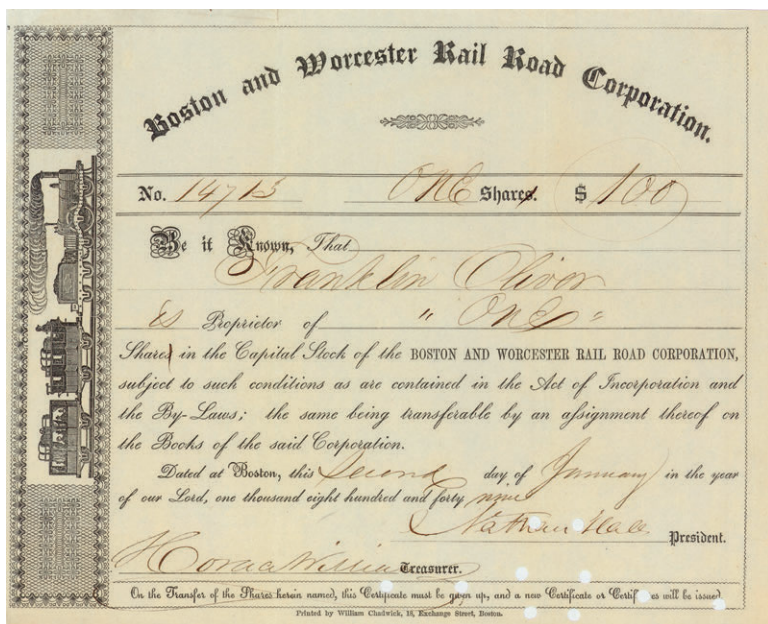 Boston and Worcester Rail Road Corporation.
No. 14713 ONE Shares. $ 100
Be it Known, That
Franklin Oliver
is Proprietor of " ONE "
Shares in the Capital Stock of the BOSTON AND WORCESTER RAIL ROAD CORPORATION,
subject to such conditions as are contained in the Act of Incorporation and
the By-Laws; the same being transferable by an assignment thereof on
the Books of the said Corporation.
Dated at Boston, this Second day of January in the year
of our Lord, one thousand eight hundred and forty nine
Nathan Hale President.
Horace Williams Treasurer.
On the Transfer of the Shares herein named, this Certificate must be given up, and a new Certificate or Certificates will be issued.
Printed by William Chadwick, 18, Exchange Street, Boston.